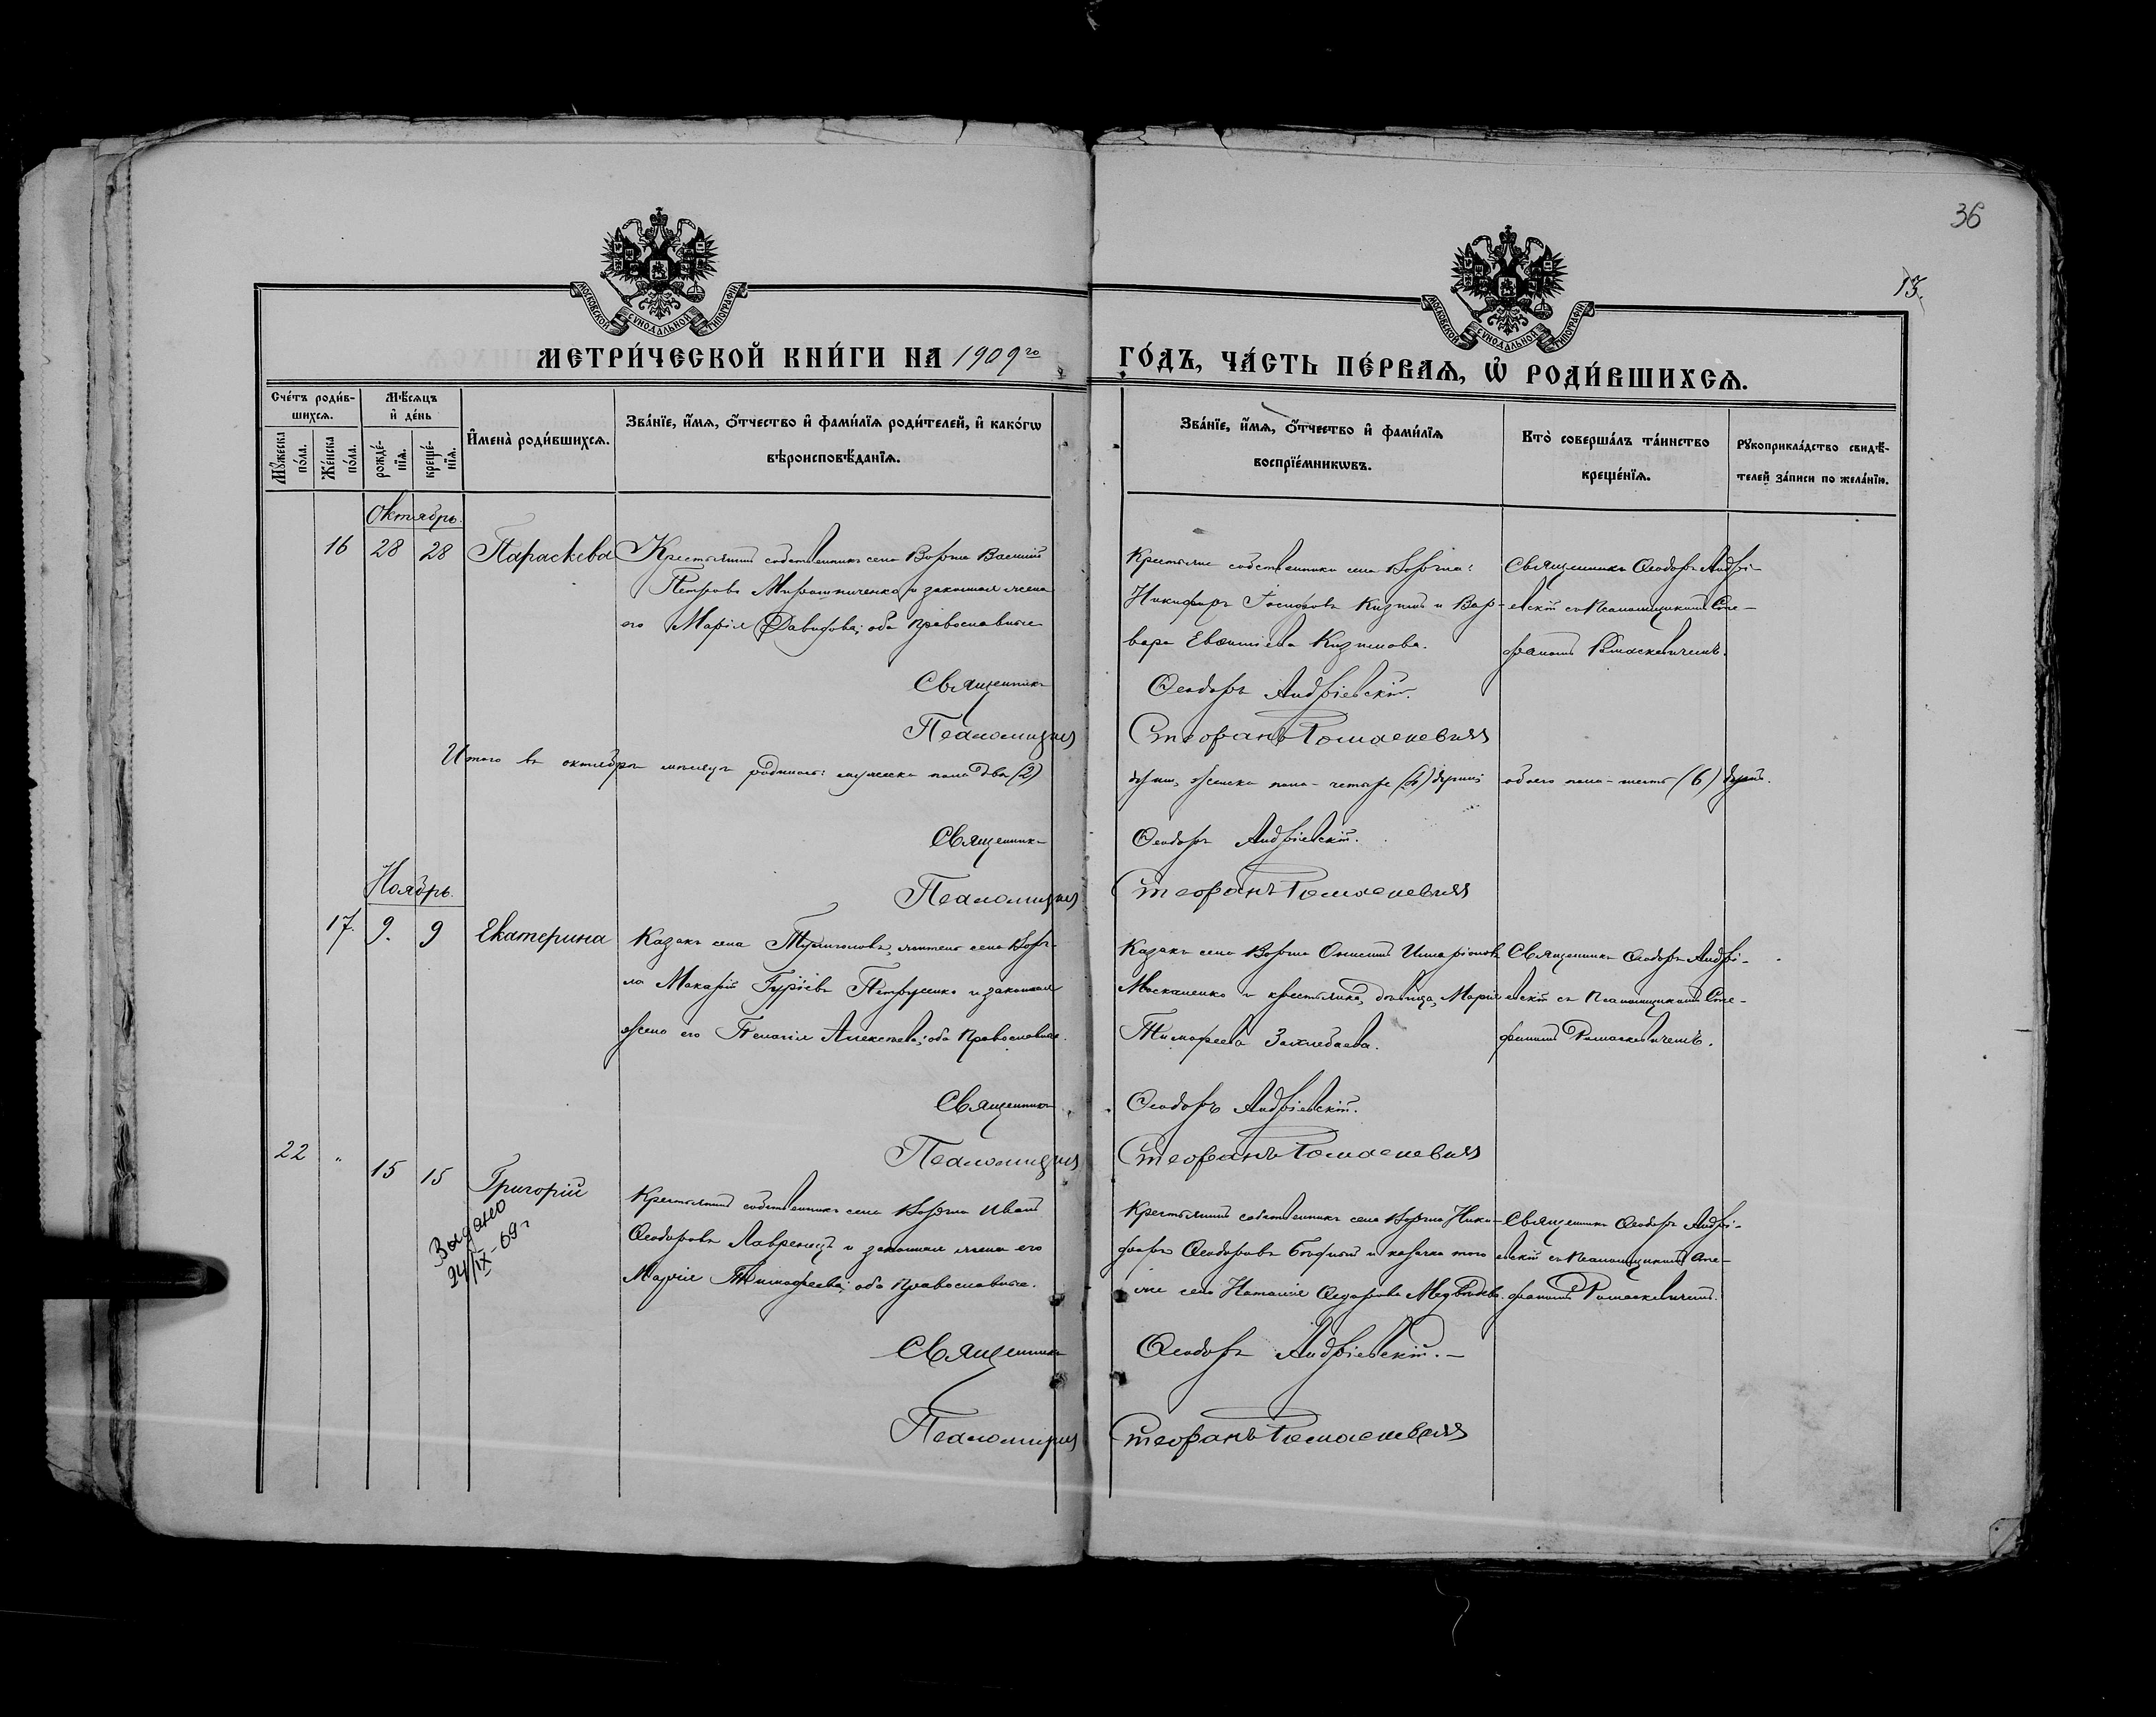 36
13.
МОСКОВСКОЙ СѴНОДАЛЬНОЙ ТИПОГРАФІИ
МОСКОВСКОЙ СѴНОДАЛЬНОЙ ТИПОГРАФІИ
МЕТРИ́ЧЕСКОЙ КНИ́ГИ НА 1909го ГО́ДЪ, ЧА́СТЬ ПЕ́РВАѦ, Ѽ РОДИ́ВШИХСѦ.
Сче́тъ роди́в-
шихсѧ.
Мꙋ́жеска по́ла.
Же́нска по́ла.
Мѣ́сѧцъ
и҆ де́нь
рожде́-
нїѧ.
креще́-
нїѧ.
И҆мена̀ роди́вшихсѧ.
Зва́нїе, и҆́мѧ, ѻ҆́тчество и҆ фами́лїѧ роди́телей, и҆ како́гѡ
вѣроисповѣ́данїѧ.
Зва́нїе, и҆́мѧ, ѻ҆́тчество и҆ фами́лїѧ
воспрїе́мникѡвъ.
Кто̀ соверша́лъ та́инство
креще́нїѧ.
Рꙋкоприкла́дство свидѣ́-
телей за́писи по жела́нїю.
Октябрь.
16 28 28 Параскева
Крестьянинъ собственникъ села Воргла Василій
Петровъ Мирошниченко и законная жена
его Марія Давидова; оба православные
Крестьяне собственники села Воргла:
Никифоръ Іосифовъ Кизимъ и Вар-
вара Евѳиміева Кизимова.
Священникъ Ѳеодоръ Андрі-
евскій съ Псаломщикомъ Сте-
фаномъ Ромаскевичемъ.
Священникъ Ѳеодоръ Андріевскій.
Псаломщикъ Стефанъ Ромаскевичъ
Итого въ октябрѣ мѣсяцѣ родилось: мужеска пола два (2)
души, женска пола – четыре (4) души; обоего пола – шесть (6) душъ.
Священникъ Ѳеодоръ Андріевскій.
Псаломщикъ Стефанъ Ромаскевичъ
Ноябрь.
17. 9. 9 Екатерина
Казакъ села житель села Ворг-
ла Макарій Гуріевъ Петрушенко и законная
жена его Пелагія Алексѣева; оба Православные.
Казакъ села Воргла Онисимъ Иларіоновъ
Москаленко и крестьянка, дѣвица, Марія
Тимофеева
Священникъ Ѳеодоръ Андрі-
евскій съ Псаломщикомъ Сте-
фаномъ Ромаскевичемъ.
Священникъ Ѳеодоръ Андріевскій.
Псаломщикъ Стефанъ Ромаскевичъ
22 " 15 15 Григорій
24/IX-69г
Крестьянинъ собственникъ села Воргла Иванъ
Ѳеодоровъ Лавренецъ и законная жена его
Марія Тимофеева; оба Православные.
Крестьянинъ собственникъ села Воргла Ники-
форъ Ѳеодоровъ и казачка того
же села Наталія Медвѣдева.
Священникъ Ѳеодоръ Андрі-
евскій съ Псаломщикомъ Сте-
фаномъ Ромаскевичемъ.
Священникъ Ѳеодоръ Андріевскій.–
Псаломщикъ Стефанъ Ромаскевичъ